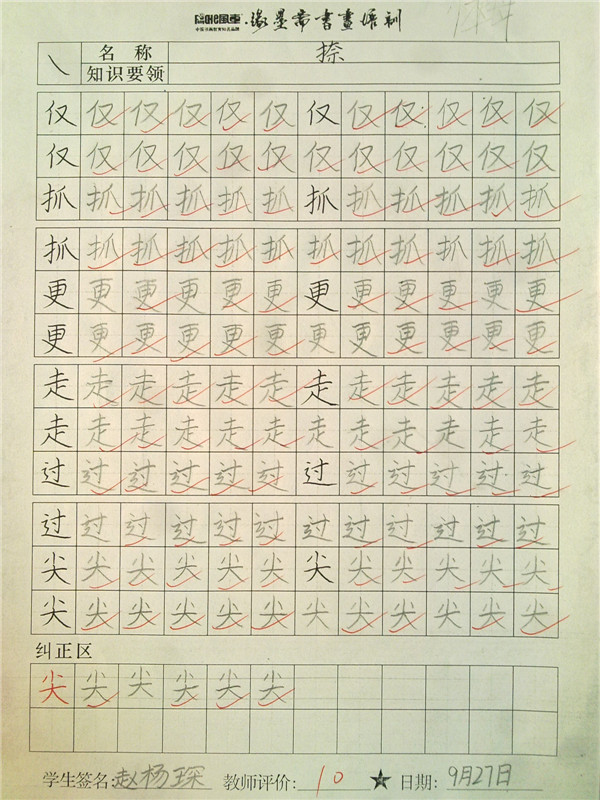 書畫培訓
名称 捺
知识要领
仅 仅 仅 仅 仅 仅 仅 仅 仅 仅 仅 仅
仅 仅 仅 仅 仅 仅 仅 仅 仅 仅 仅 仅
抓 抓 抓 抓 抓 抓 抓 抓 抓 抓 抓 抓
抓 抓 抓 抓 抓 抓 抓 抓 抓 抓 抓 抓
更 更 更 更 更 更 更 更 更 更 更 更
更 更 更 更 更 更 更 更 更 更 更 更
走 走 走 走 走 走 走 走 走 走 走 走
走 走 走 走 走 走 走 走 走 走 走 走
过 过 过 过 过 过 过 过 过 过 过 过
过 过 过 过 过 过 过 过 过 过 过 过
尖 尖 尖 尖 尖 尖 尖 尖 尖 尖 尖 尖
尖 尖 尖 尖 尖 尖 尖 尖 尖 尖 尖 尖
纠正区
尖 尖 尖 尖 尖 尖
学生签名:赵杨琛 教师评价:10 ★ 日期:9月27日